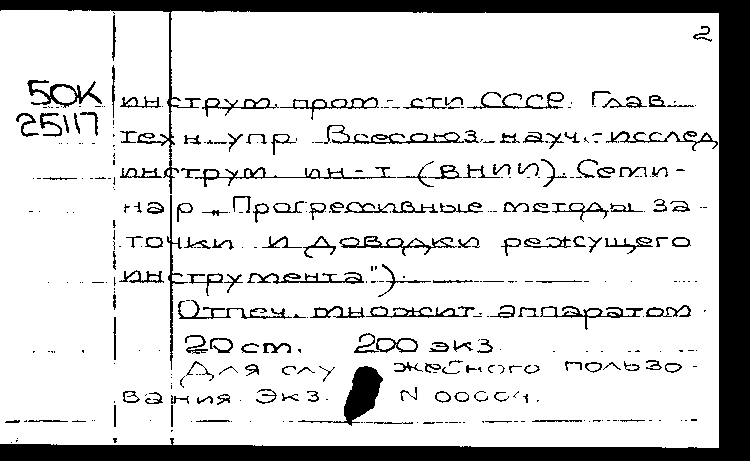 2
50К
25117
инструм. пром-сти СССР. Глав.
техн. упр. Всесоюз. науч.-исслед.
инструм. ин-т (ВНИИ). Семи-
нар „Прогрессивные методы за-
точки и доводки режущего
инструмента").
Отпеч. множит. аппаратом.
20 ст. 200 экз.
Для служебного пользо-
вания Экз. N 00004.